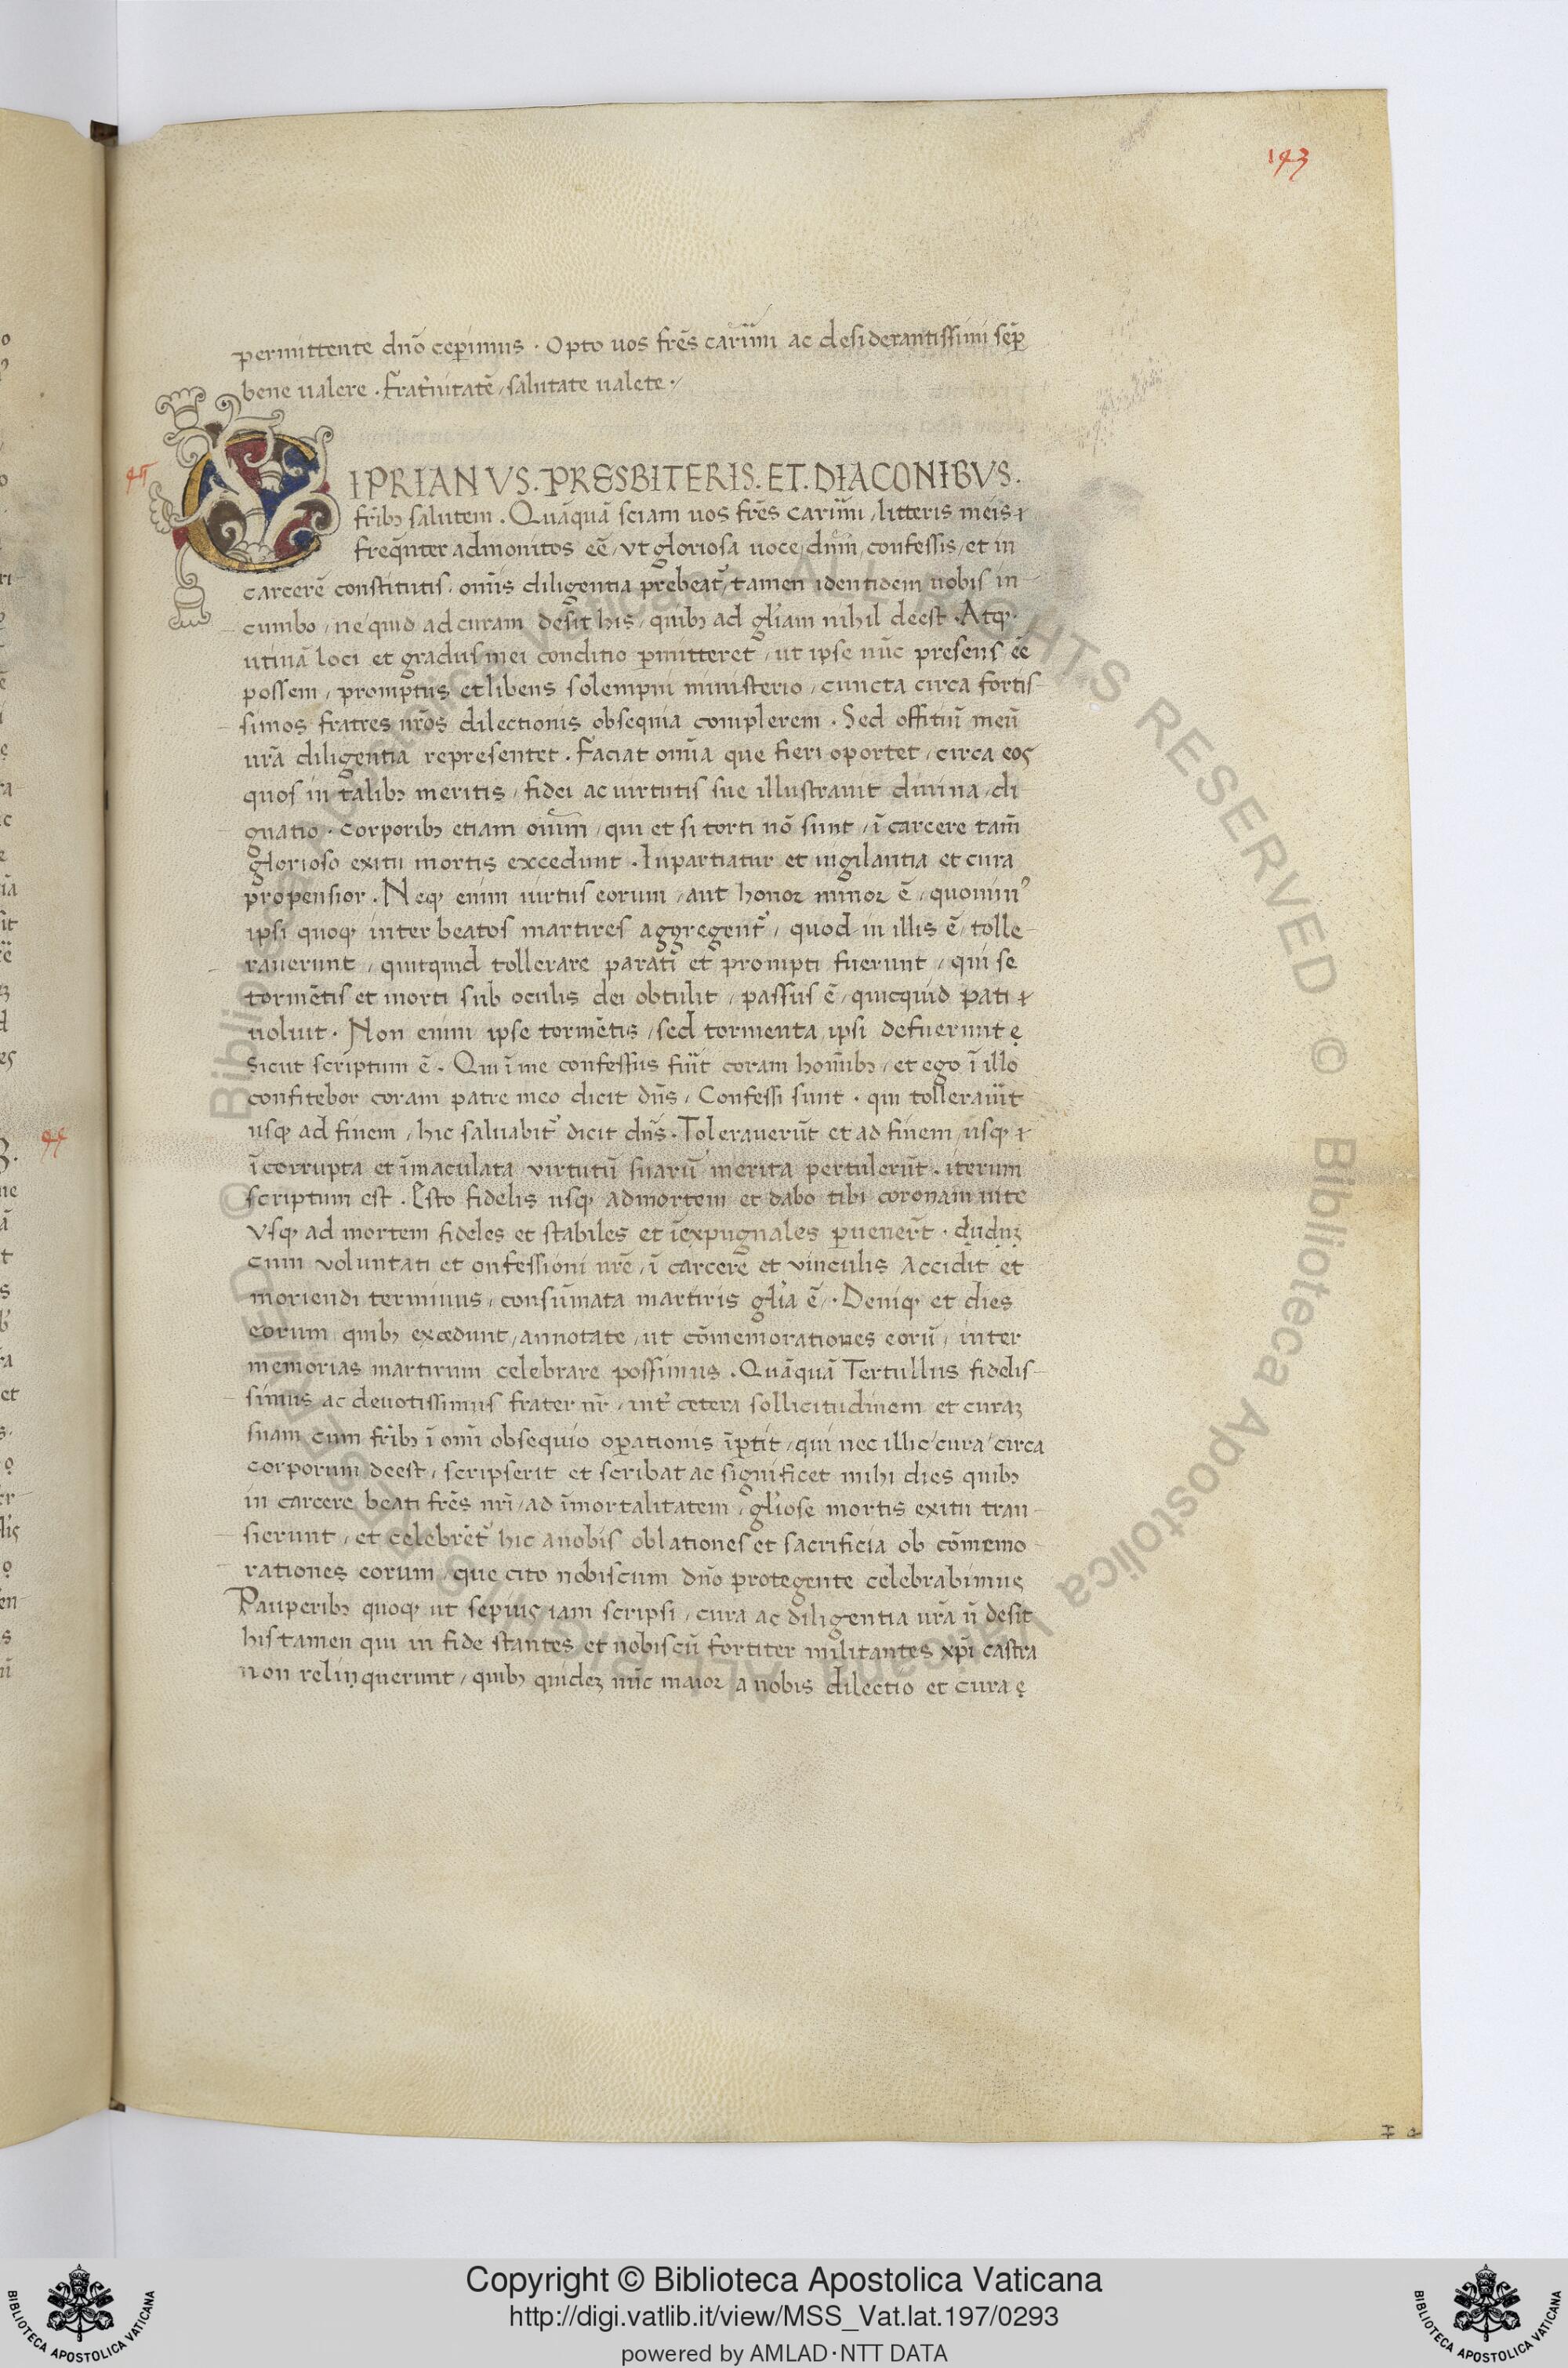 143
permittente dnō ceperimus . Opto uos frēs cariīmi ac desiderantissimi sēp
bene ualere . Fraťnitatē / salutate ualete ./
45
CIPRIANVS . PRESBITERIS . ET . DIACONIBVS .
frībꝫ salutem . Quāquā sciam uos frēs cariīmi / litteris meis
freq̄nter admonitos eē / vt gloriosa uoce dnīm confessis / et in
carcerē constitutis . omīs diligentia prebeat᷑ / tamen identidem uobis in
cumbo / ne quid ad curam desit his / quibꝫ ad gl̄iam nihil deest . Atqꝫ
utinā loci et gradus mei conditio ꝑmitteret / ut ipse nūc presens eē
possem / promptus et libens solempni ministerio / cuncta circa fortis
simos fratres nrōs dilectionis obsequia complerem . Sed offitiū meū
urā diligentia representet . Faciat omīa que fieri oportet / circa eos
quos in talibꝫ meritis / fidei ac uirtutis sue illustrauit diuina / di
gnatio . Corporibꝫ etiam oīum / qui et si torti nō sunt / ī carcere tam̄
glorioso exitu mortis excedunt . Inpartiatur et uigilantia et cura
propensior . Neqꝫ enim uirtus eorum / aut honor minor ē / quomin᷒
ipsi quoqꝫ inter beatos martires aggregent᷑ / quod in illis ē / tolle
rauerunt / quitquid tollerare parati et prompti fuerunt / qui se
tormētis et morti sub oculis dei obtulit / passus ē / quicquid pati
uoluit . Non enim ipse tormētis / sed tormenta ipsi defuerunt
Sicut scriptum ē . Qui ī me confessus fuīt coram homībꝫ / et ego ī illo
confitebor coram patre meo dicit dn̄s / Confessi sunt . qui tollerauīt
usqꝫ ad finem / hic saluabit᷑ dicit dn̄s . Tolerauerūt et ad finem usqꝫ
īcorrupta et īmaculata virtutū suarū merita pertulerūt . iterum
scriptum est . Esto fidelis usqꝫ admortem et dabo tibi coronam uite
Vsqꝫ ad mortem fideles et stabiles et īexpugnales ꝑuener̄t .
cum voluntati et onfessioni nrē / ī carcerē et vinculis Accidit et
moriendi terminus / consūmata martiris gl̄ia ē / . Deniqꝫ et dies
eorum quibꝫ excedunt / annotate / ut cōmemorationes eorū / inter
memorias martirum celebrare possimus . Quāquā Tertullus fidelis
simus ac deuotissimus frater nr̄ / int᷑ cetera sollicitudinem et curaꝫ
suam cum frībꝫ ī omī obsequio oꝑationis īꝑtit / qui nec illic cura circa
corporum deest / scripserit et scribat ac significet mihi dies quibꝫ
in carcere beati frēs nrī / ad īmortalitatem / gl̄iose mortis exitu tran
sierunt / et celebrēt᷑ hic anobis oblationes et sacrificia ob cōmemo
rationes eorum / que cito nobiscum dn̄o protegente celebrabimus
Pauperibꝫ quoqꝫ ut sepius iam scripsi / cura ac diligentia urā n̄ desit
his tamen qui in fide stantes et nobiscū fortiter militantes xp̄i castra
non relinquerunt / quibꝫ quideꝫ nūc maior a nobis dilectio et cura
Copyright © Biblioteca Apostolica Vaticana
http://digi.vatlib.it/view/MSS_Vat.lat.197/0293
powered by AMLAD·NTT DATA